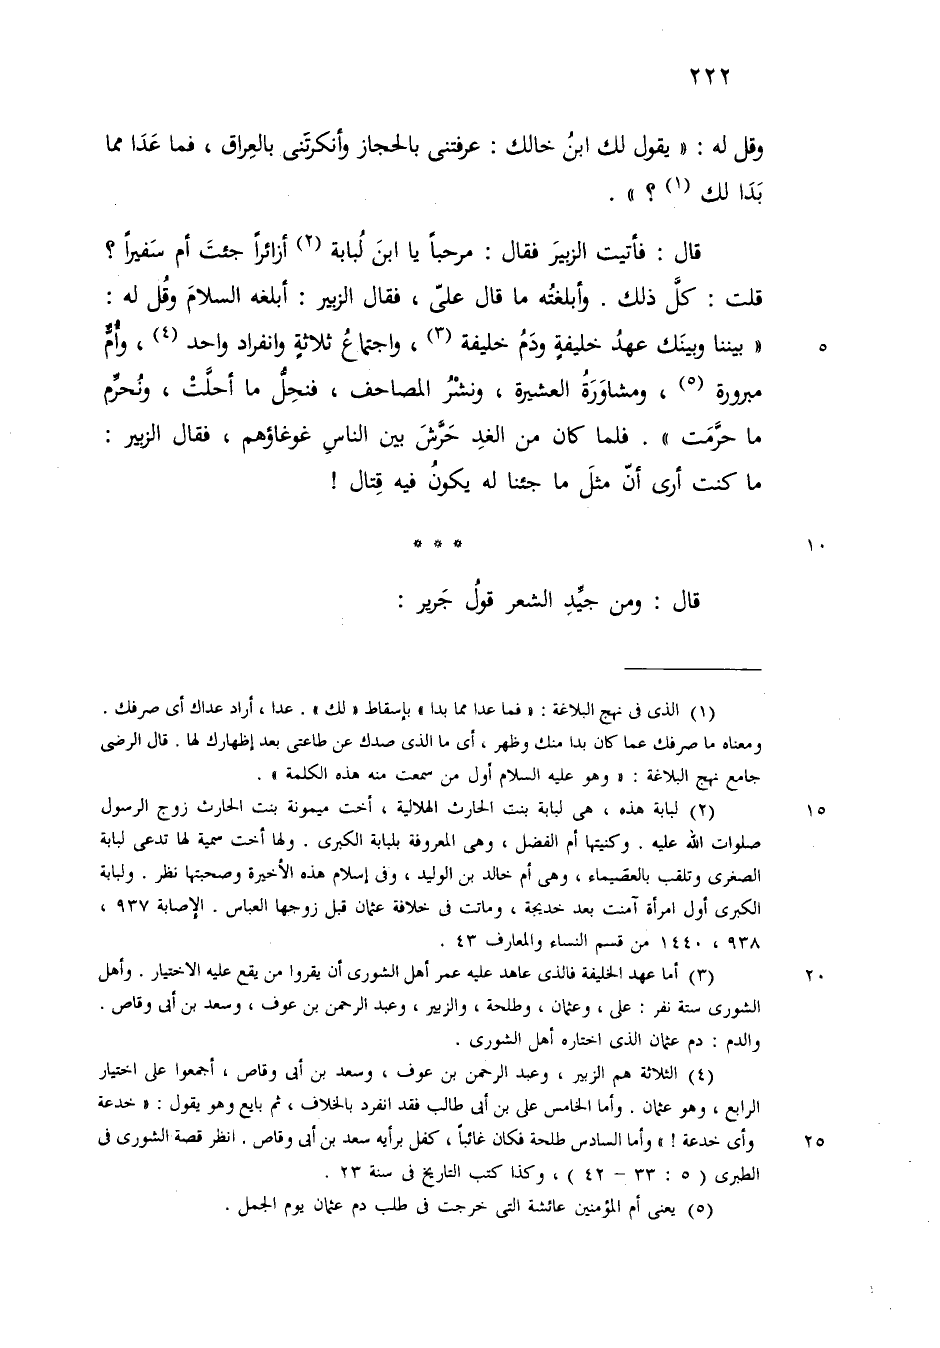 ٢٢٢
وقل له : « يقول لك ابنُ خالك : عرفتنى بالحجاز وأنكرتَنى بالعِراق ، فما عَدَا مما
بَدَا لك (١) ؟ » .
قال : فأتيت الزبيرَ فقال : مرحباً يا ابنَ لُبابة (٢) أزائراً جئتَ أم سَفيراً ؟
قلت : كلَّ ذلك . وأبلغتُه ما قال علىّ ، فقال الزبير : أبلغه السلامَ وقُل له :
« بيننا وبينَك عهدُ خليفةٍ ودَمُ خليفة (٣) ، واجتماعُ ثلاثةٍ وانفراد واحد (٤) ، وأُمٌّ
٥
مبرورة (٥) ، ومشاوَرَةُ العشيرة ، ونشْرُ المصاحف ، فنحِلُّ ما أحلَّتْ ، ونُحرِّم
ما حرَّمَت » . فلما كان من الغدِ حَرَّشَ بين الناسِ غوغاؤهم ، فقال الزبير :
ما كنت أرى أنّ مثلَ ما جئنا له يكونُ فيه قِتال !
* * *
١٠
قال : ومن جيِّدِ الشعر قولُ جَرير :
(١) الذى فى نهج البلاغة : « فما عدا مما بدا » بإسقاط « لك » . عدا ، أراد عداك أى صرفك .
ومعناه ما صرفك عما كان بدا منك وظهر ، أى ما الذى صدك عن طاعتى بعد إظهارك لها . قال الرضى
جامع نهج البلاغة : « وهو عليه السلام أول من سمعت منه هذه الكلمة » .
(٢) لبابة هذه ، هى لبابة بنت الحارث الهلالية ، أخت ميمونة بنت الحارث زوج الرسول
١٥
صلوات الله عليه . وكنيتها أم الفضل ، وهى المعروفة بلبابة الكبرى . ولها أخت سمية لها تدعى لبابة
الصغرى وتلقب بالعصيماء ، وهى أم خالد بن الوليد ، وفى إسلام هذه الأخيرة وصحبتها نظر . ولبابة
الكبرى أول امرأة آمنت بعد خديجة ، وماتت فى خلافة عثمان قبل زوجها العباس . الإصابة ٩٣٧ ،
٩٣٨ ، ١٤٤٠ من قسم النساء والمعارف ٤٣ .
(٣) أما عهد الخليفة فالذى عاهد عليه عمر أهل الشورى أن يقروا من يقع عليه الاختيار . وأهل
٢٠
الشورى ستة نفر : على ، وعثمان ، وطلحة ، والزبير ، وعبد الرحمن بن عوف ، وسعد بن أبى وقاص .
والدم : دم عثمان الذى اختاره أهل الشورى .
(٤) الثلاثة هم الزبير ، وعبد الرحمن بن عوف ، وسعد بن أبى وقاص ، أجمعوا على اختيار
الرابع ، وهو عثمان . وأما الخامس على بن أبى طالب فقد انفرد بالخلاف ، ثم بايع وهو يقول : « خدعة
وأى خدعة ! » وأما السادس طلحة فكان غائباً ، كفل برأيه سعد بن أبى وقاص . انظر قصة الشورى فى
٢٥
الطبرى ( ٥ : ٣٣ – ٤٢ ) ، وكذا كتب التاريخ فى سنة ٢٣ .
(٥) يعنى أم المؤمنين عائشة التى خرجت فى طلب دم عثمان يوم الجمل .